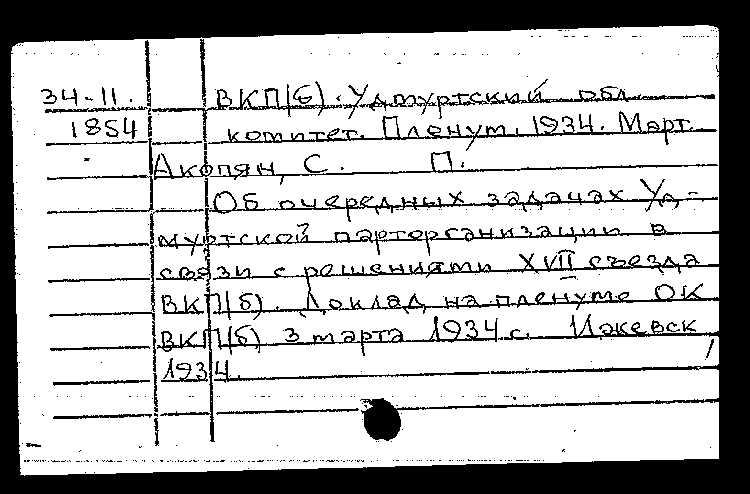 34-11. ВКП(б). Удмуртский обл.
1854 комитет. Пленум. 1934. Март.
Акопян, С. П.
Об очередных задачах Уд-
муртской парторганизации в
связи с решениями XVII съезда
ВКП(б). Доклад на пленуме ОК
ВКП(б) 3 марта 1934 г. Ижевск,
1934.